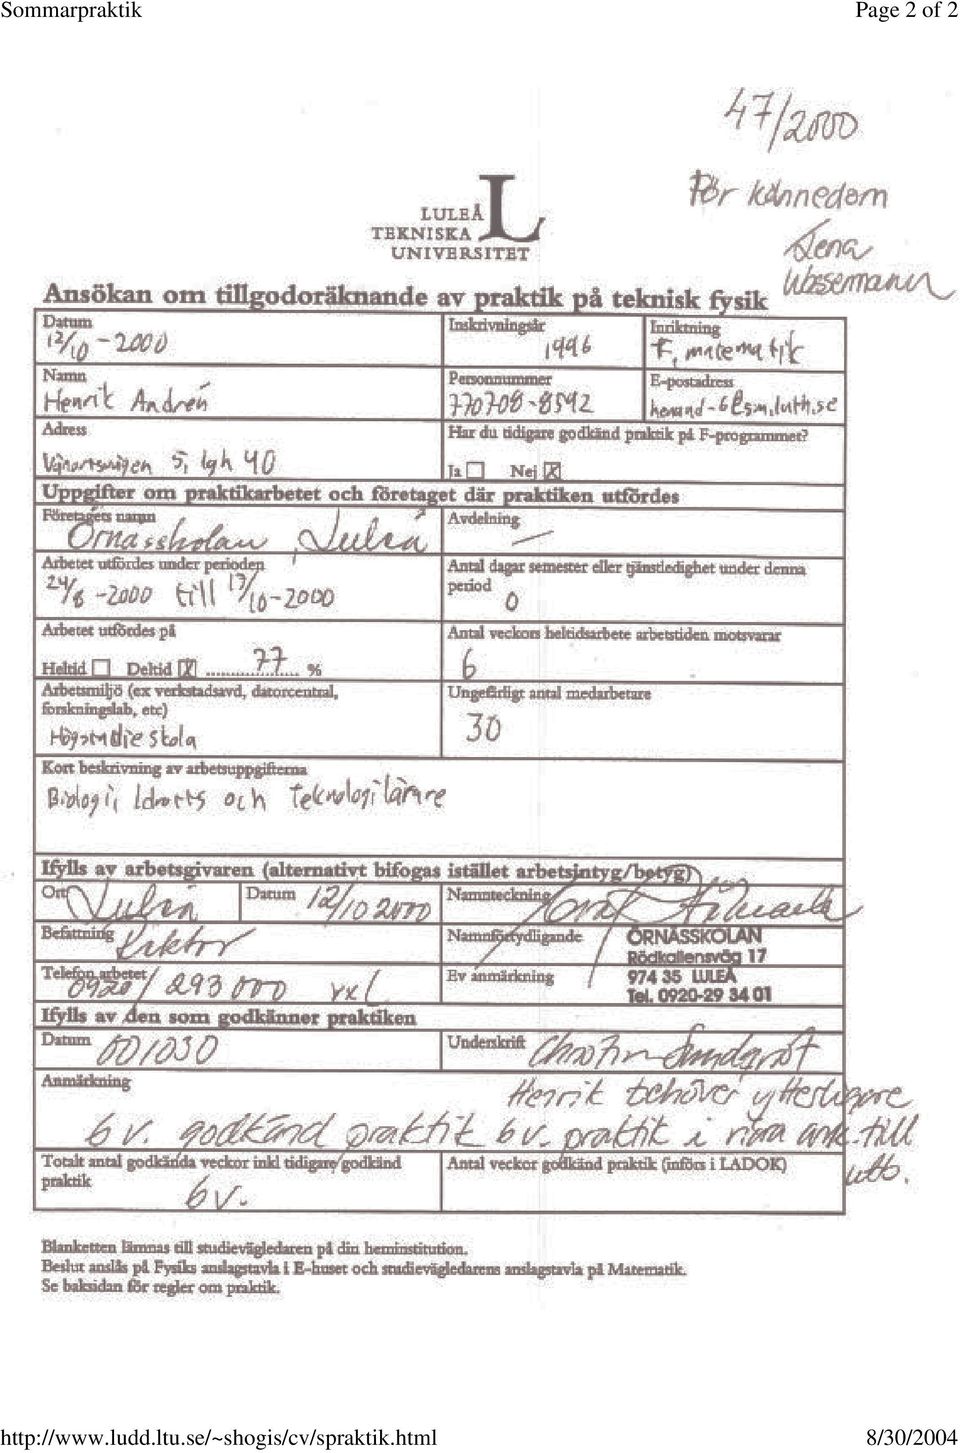 Sommarpraktik Page 2 of 2
47/2000
För kännedom
Lena
Wassermann
LULEÅ
TEKNISKA
UNIVERSITET
Ansökan om tillgodoräknande av praktik på teknisk fysik
Datum Inskrivningsår Inriktning
12/10 -2000 1996 F, matematik
Namn Personnummer E-postadress
Henrik Andrén 770708-8592 henand-6@sm.luth.se
Adress Har du tidigare godkänd praktik på F-programmet?
5, lgh 40 Ja Nej X
Uppgifter om praktikarbetet och företaget där praktiken utfördes
Företagets namn Avdelning
Örnässkolan, Luleå —
Arbetet utfördes under perioden Antal dagar semester eller tjänstledighet under denna
period
24/8 -2000 till 13/10-2000 0
Arbetet utfördes på Antal veckors heltidsarbete arbetstiden motsvarar
Heltid Deltid X ..... 77 ..... % 6
Arbetsmiljö (ex verkstadsavd, datorcentral, Ungefärligt antal medarbetare
forskningslab, etc)
Högstadieskola 30
Kort beskrivning av arbetsuppgifterna
Biologi, Idrotts och Teknologilärare
Ifylls av arbetsgivaren (alternativt bifogas istället arbetsintyg/betyg)
Ort Luleå Datum 12/10 2000 Namnteckning
Befattning Rektor Namnförtydligande ÖRNÄSSKOLAN
Rödkallensväg 17
Telefon arbetet 0920/293000 vxl Ev anmärkning 974 35 LULEÅ
Tel. 0920-29 34 01
Ifylls av den som godkänner praktiken
Datum 001030 Underskrift Christin Sundqvist
Anmärkning Henrik behöver ytterligare
6 v. godkänd praktik 6 v. praktik i nära ank. till
utb.
Totalt antal godkända veckor inkl tidigare godkänd Antal veckor godkänd praktik (införs i LADOK)
praktik 6v.
Blanketten lämnas till studievägledaren på din heminstitution.
Beslut anslås på Fysiks anslagstavla i E-huset och studievägledarens anslagstavla på Matematik.
Se baksidan för regler om praktik.
http://www.ludd.ltu.se/~shogis/cv/spraktik.html 8/30/2004